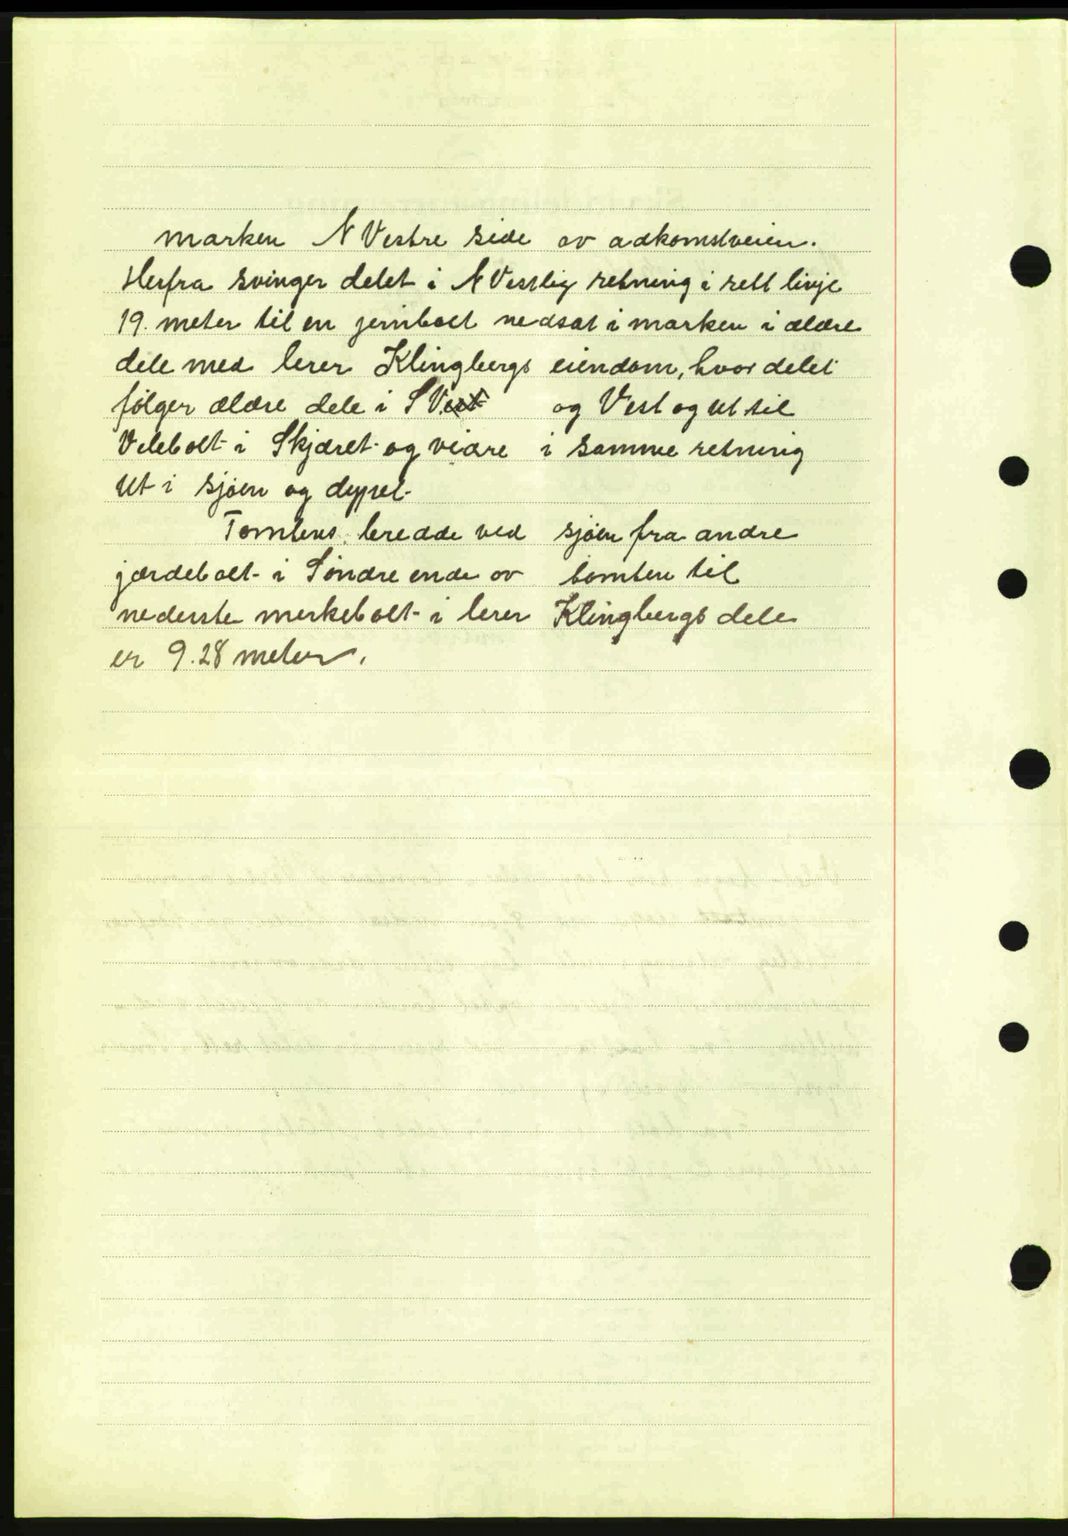 marken N Vestre side av adkomstveien.
Herfra svinger delet i N Vestlig retning i rett linje
19. meter til en jernbolt nedsat i marken i ældre
dele med lerer Klingbergs eiendom, hvor delet
følger ældre dele i S Vest og Vest og ut til
Delebolt i Skjæret og vidre i samme retning
ut i sjøen og dypet.
Tomtens bredde ved sjøen fra andre
jærdebolt i Søndre ende av tomten til
nederste merkebolt i lerer Klingbergs dele
er 9.28 meter.